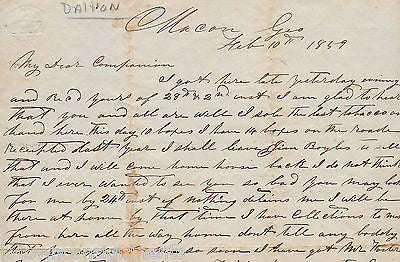 DALTON
Macon Geo
Feb 10th 1859
My Dear Companion
I got here late yesterday evening
and Recd yours of 28th & 2nd inst I am glad to hear
that you and all are well I sole the last tobacco on
hand here this day 10 boxes I have 14 boxes on the road
receipted last year I shall leave Jim Boyles is sell
that and I will come home horse back I do not think
that I ever wanted to see you so bad you may look
for me by 24th inst if nothing detains me I will be
there at home by that time I have Collections to make
from here all the way home dont tell any body
that you so soon I have got Mr Foster